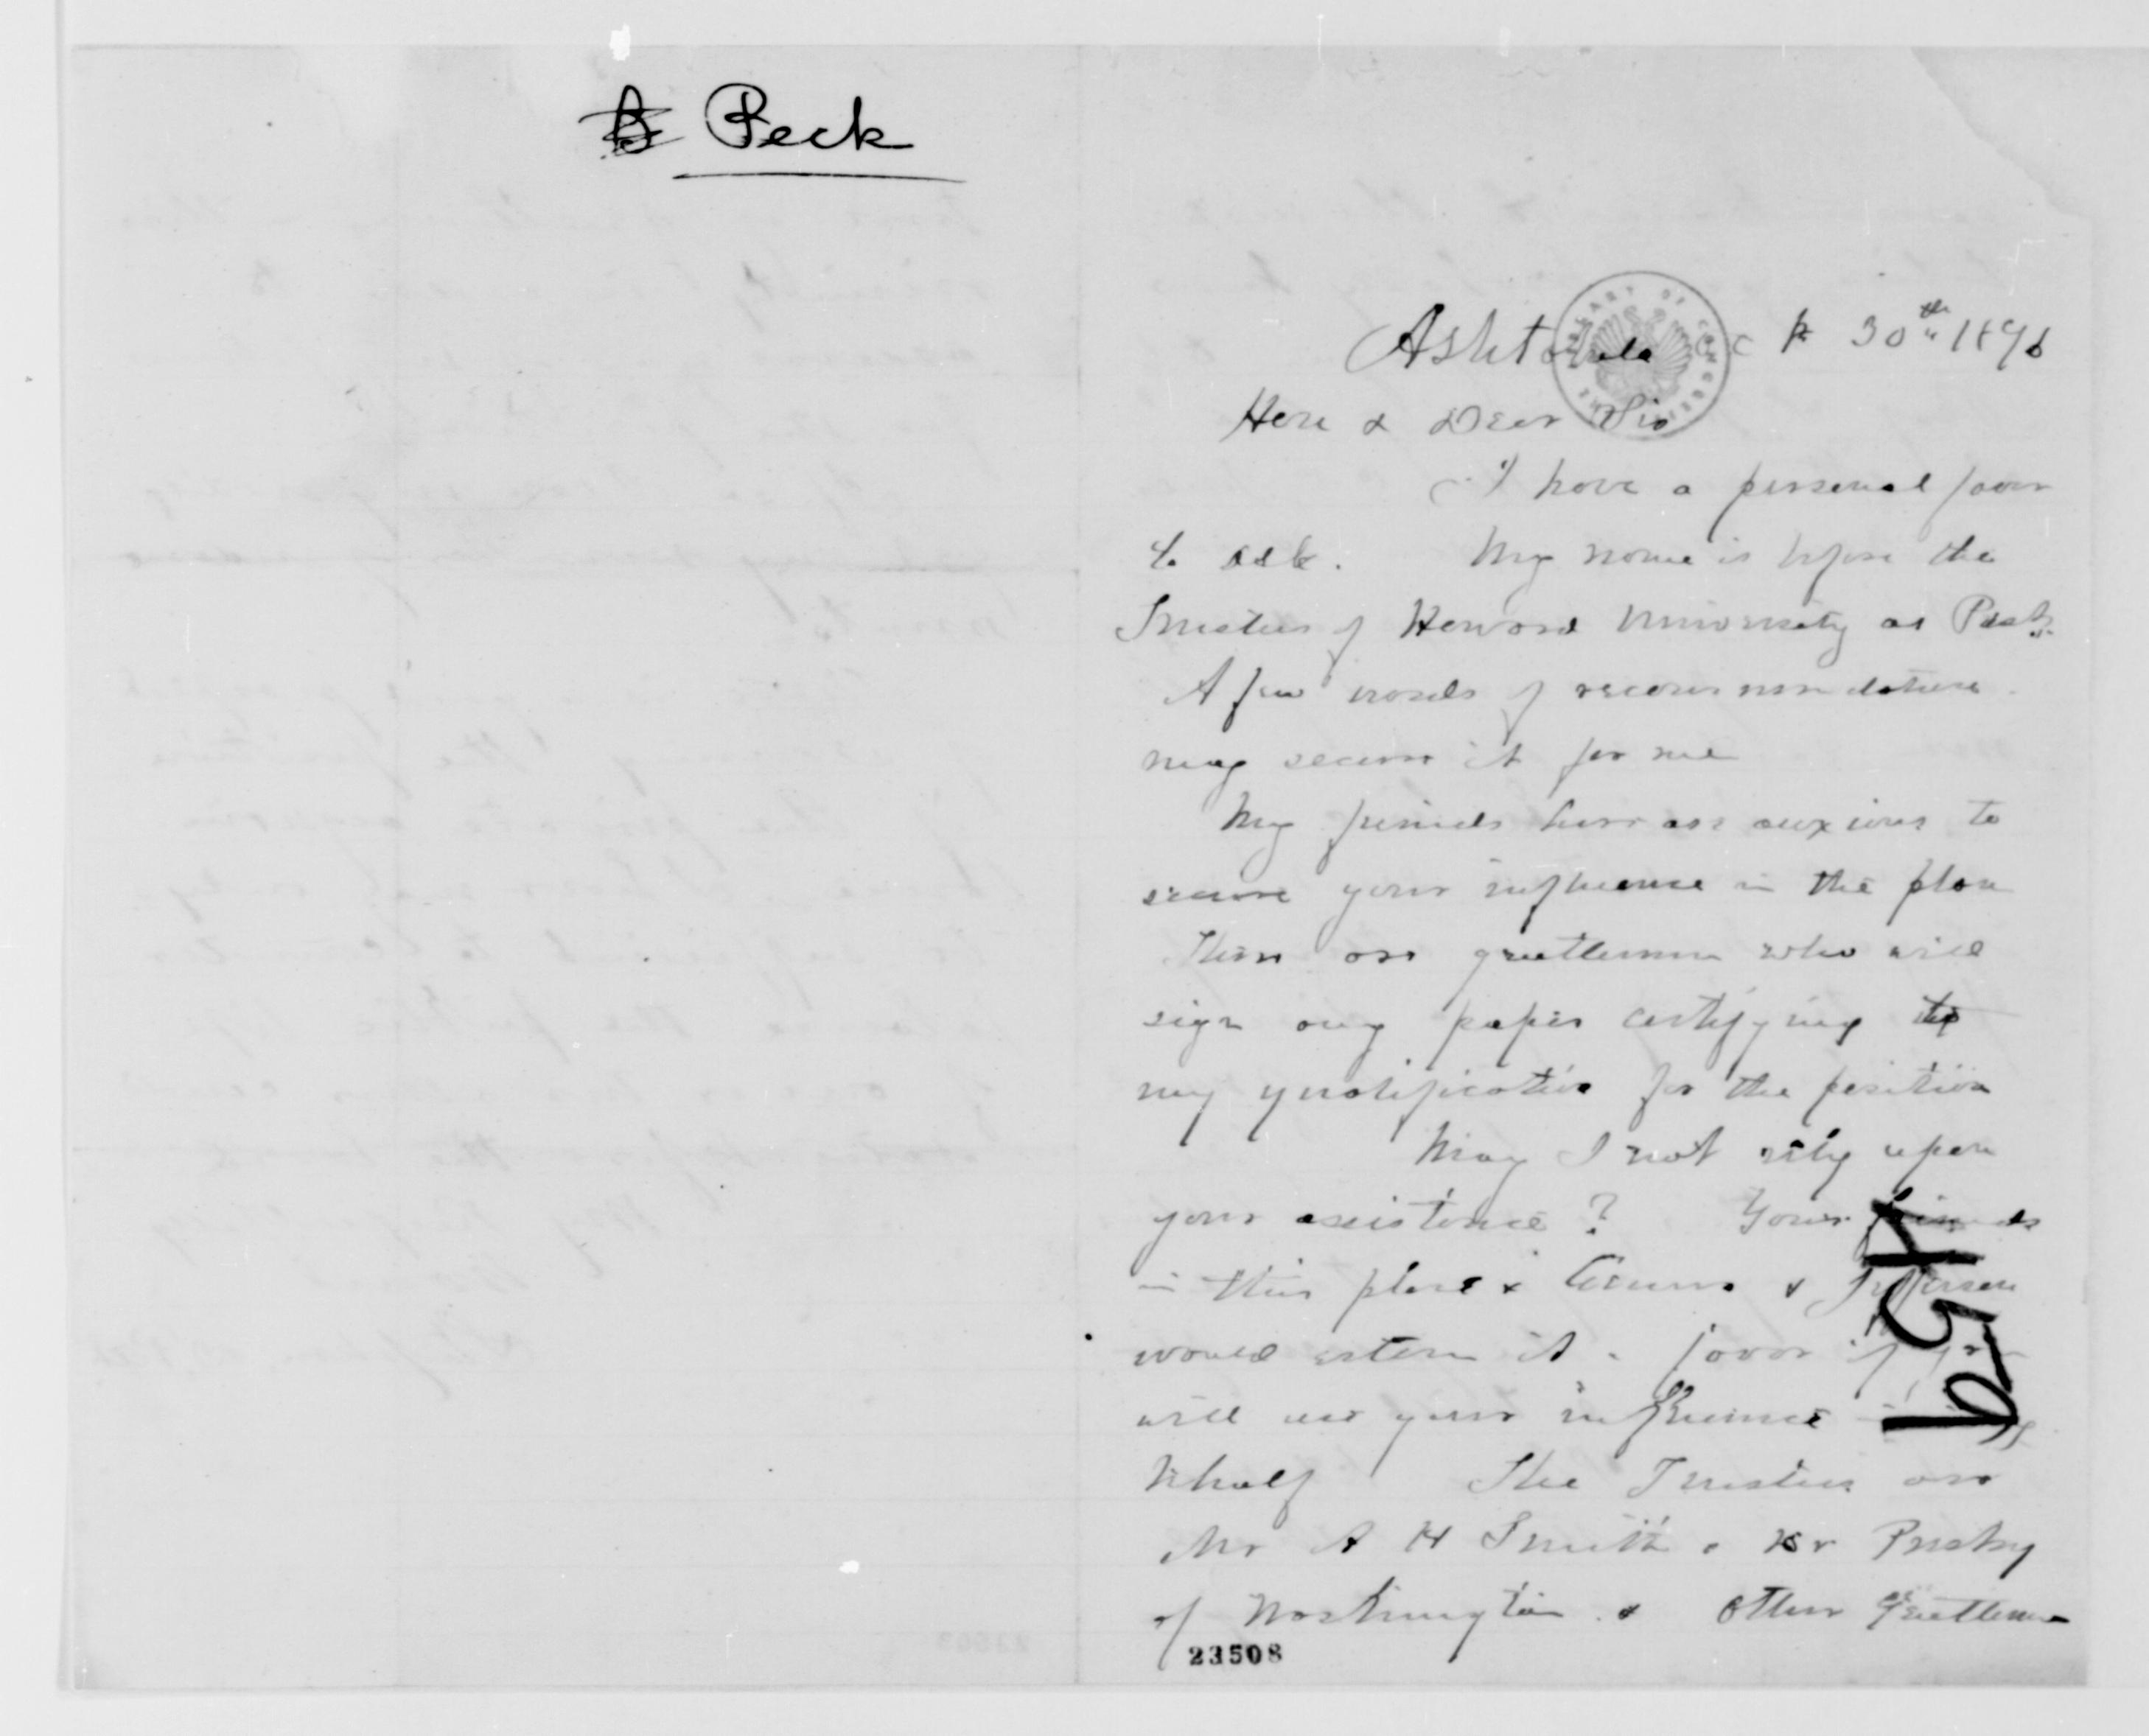 Peck
LIBRARY OF CONGRESS
Ashtabula 30th 1876
Hon & Dear Sir
I have a personal favor
to ask. My name is before the
Trustees of Howard University as Prest.
A few words of recommendation
may secure it for me
My friends here are anxious to
secure your influence in the plan
There are gentlemen who will
sign any paper certifying to
my qualification for the position
May I not rely upon
your assistance? Your friends
in this place & & Jefferson
would esteem it a favor if you
will use your influence in my
behalf The Trustees are
Mr A H Smith Dr
of Washington & other Gentlemen
23508